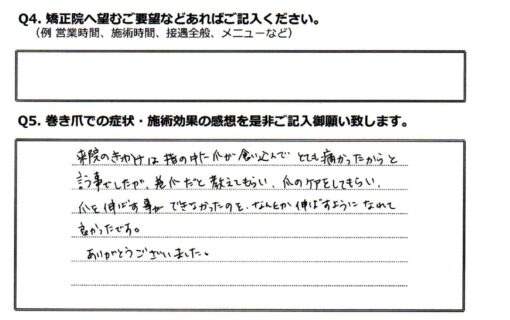 Q4. 矯正院へ望むご要望などあればご記入ください。
（例 営業時間、施術時間、接遇全般、メニューなど）
Q5. 巻き爪での症状・施術効果の感想を是非ご記入御願い致します。
来院のきっかけは指の中に爪が食い込んで とても痛かったからと
言う事でしたが、巻爪だと教えてもらい、爪のケアをしてもらい、
爪を伸ばす事ができなかったのを、なんとか伸ばすようになれて
良かったです。
ありがとうございました。